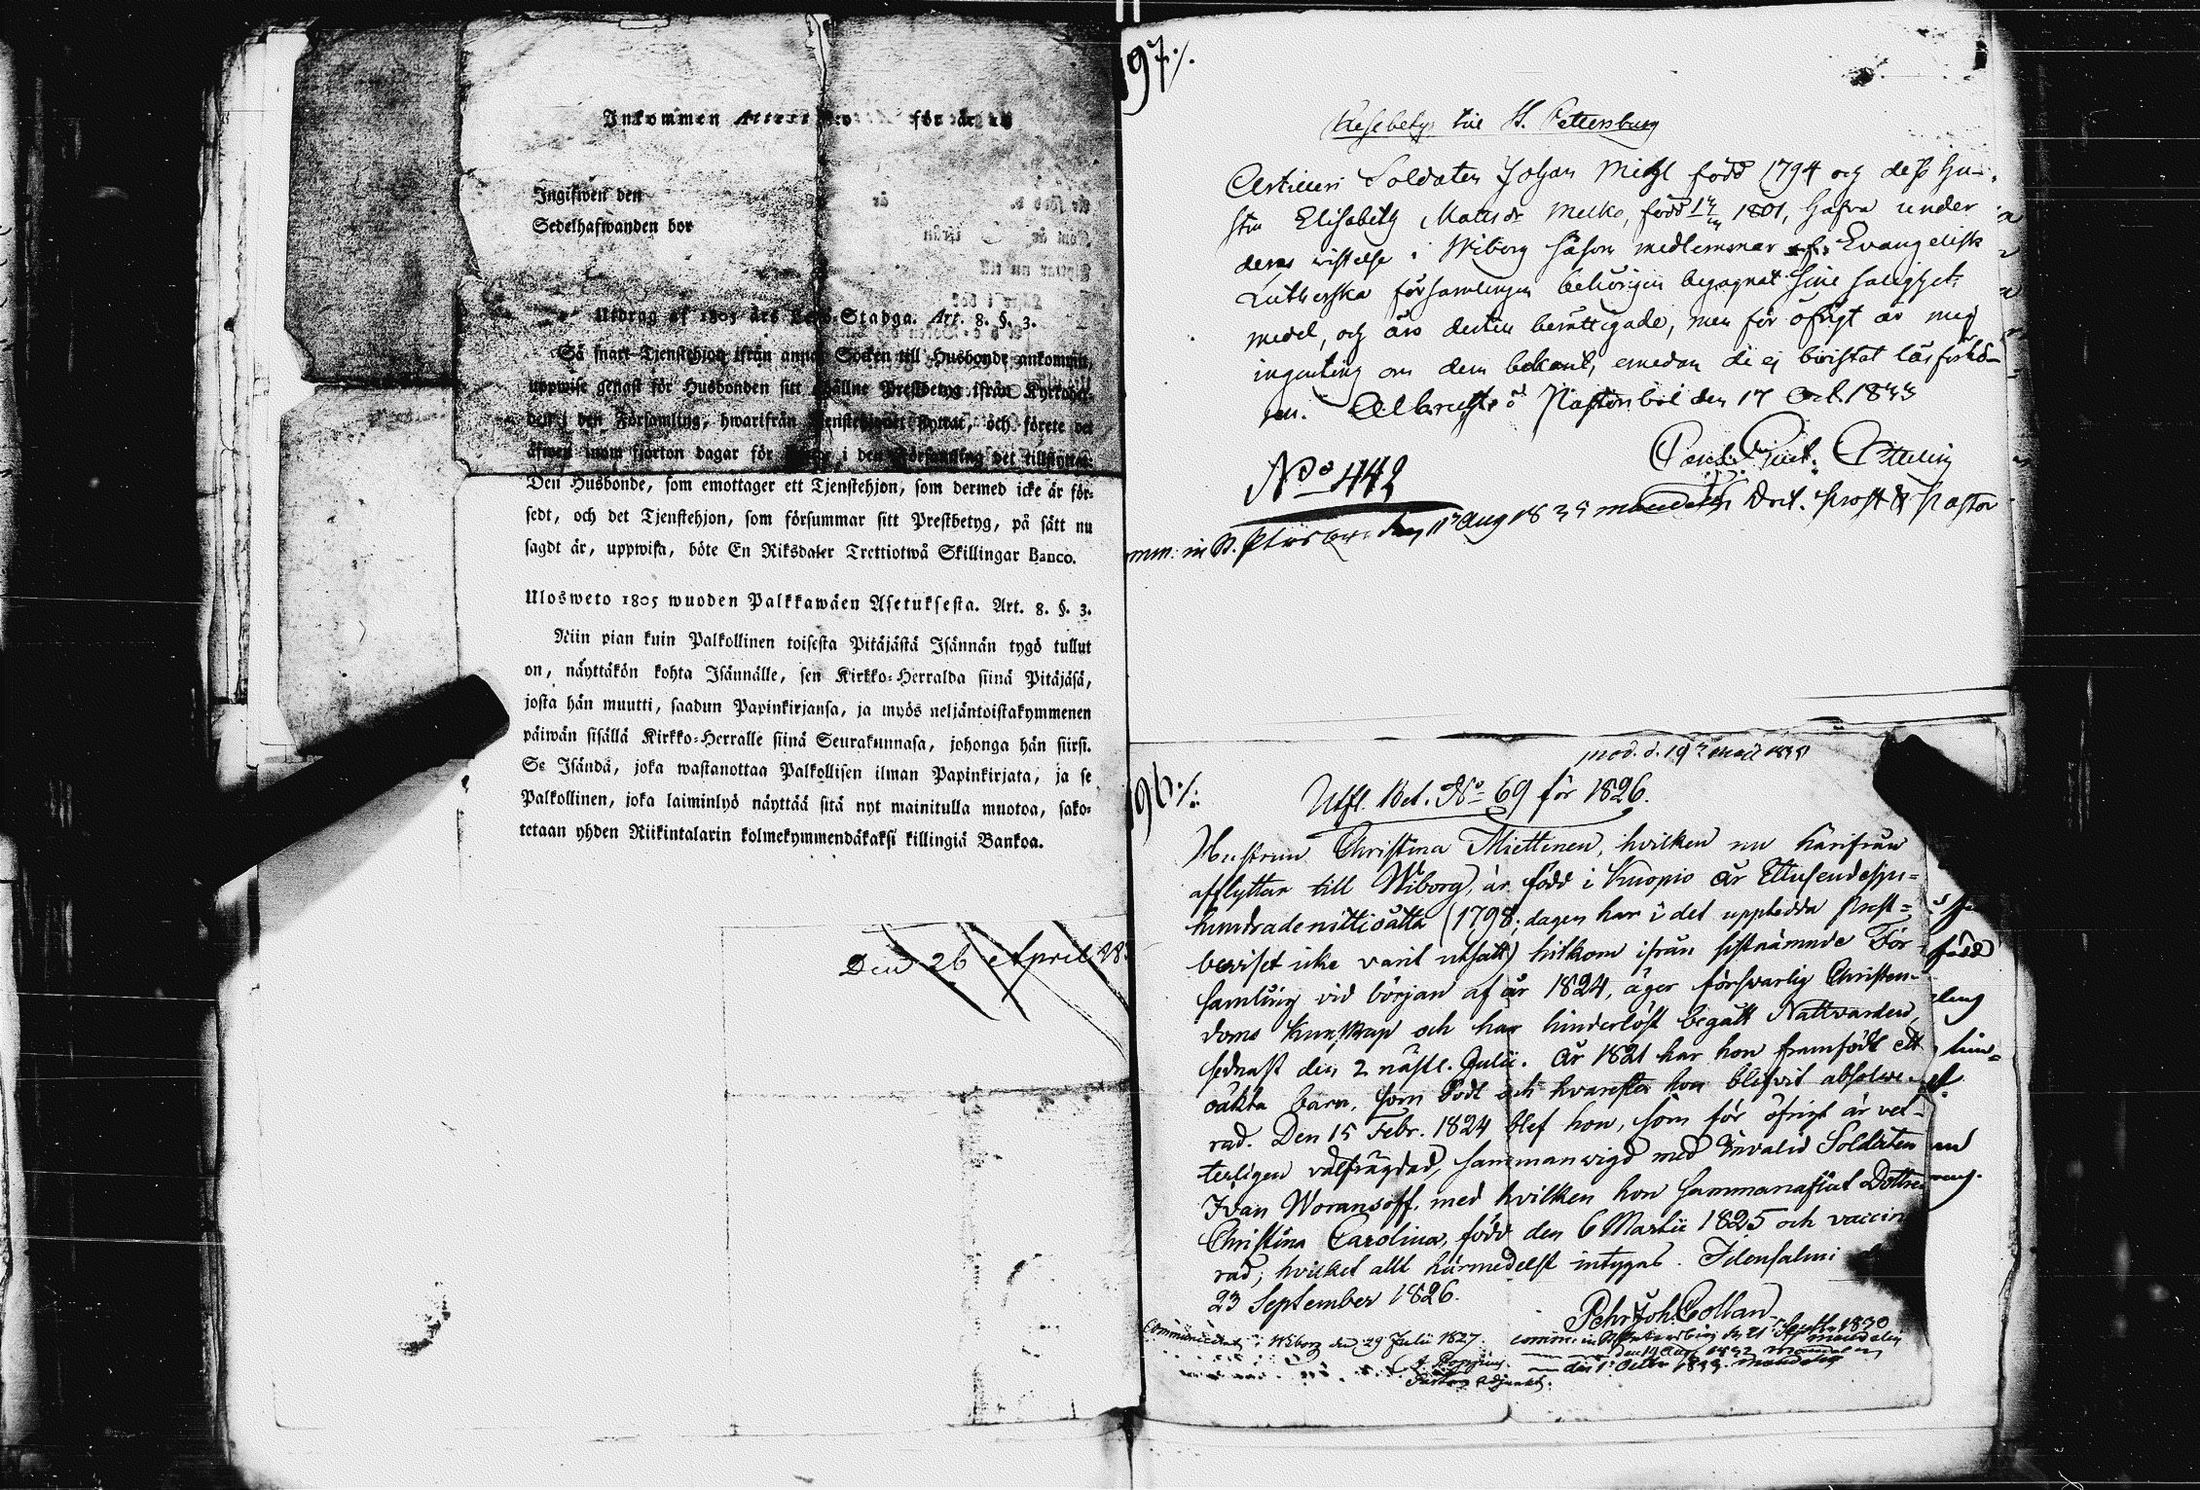 Inkommen Attest för år
Ingifwen den
Sedelhafwanden bor
Utdrag af 1805 års Lego-Stadga. Art. 8. §. 3.
Så snart Tjenstehjon ifrån annan Socken till Husbonde ankommit,
uppwise genast för Husbonden sitt erhållne Prestbetyg ifrån Kyrkoher-
den i den Församling, hwarifrån Tjenstehjonet flyttat, och förete det
äfwen inom fjorton dagar för i den Församling det tillflyttat.
Den Husbonde, som emottager ett Tjenstehjon, som dermed icke är för-
sedt, och det Tjenstehjon, som försummar sitt Prestbetyg, på sätt nu
sagdt är, uppwisa, böte En Riksdaler Trettiotwå Skillingar Banco.
Ulosweto 1805 wuoden Palkkawäen Asetuksesta. Art. 8. §. 3.
Niin pian kuin Palkollinen toisesta Pitäjästä Isännän tygö tullut
on, näyttäkön kohta Isännälle, sen Kirkko-Herralda siinä Pitäjäsä,
josta hän muutti, saadun Papinkirjansa, ja myös neljäntoistakymmenen
päiwän sisällä Kirkko-Herralle siinä Seurakunnasa, johonga hän siirsi.
Se Isändä, joka wastanottaa Palkollisen ilman Papinkirjata, ja se
Palkollinen, joka laiminlyö näyttää sitä nyt mainitulla muotoa, sako-
tetaan yhden Riikintalarin kolmekymmendäkaksi killingiä Bankoa.
Den 26 April 183
197./.
Resebetyg till St. Pettersburg
Artilleri Soldaten Johan Michl född 1794 och dess hu-
stru Elisabeth Matts dr Melko, född 1801, hafva under
deras vistelse i Wiborg såsom medlemmar af Evangelisk
Lutherska församlingen behörigen begagnat sine salighets
medel, och äro dertill berättigade, men för öfrigt är mig
ingenting om dem bekant, emedan de ej bivistat läsförhö-
ren. Pastorsbol den 17 Oct. 1833
No 442
in St. Petersburg den 11 Aug 1835 Prost & Pastor
196./.
prod. d. 19 Maji 1835
Utfl. Bet. No 69 för 1826.
Hustrun Christina Miettinen, hvilken nu härifrån
afflyttar till Wiborg, är född i Kuopio år Ettusendesju-
hundradenittioåtta (1798; dagen har i det uppledda Prest-
beviset icke varit utsatt) hitkom ifrån sistnämnde För-
samling vid början af år 1824, äger försvarlig Christen-
doms kunskap och har hinderlöst begått Nattvarden,
sednast den 2 nästl. Julii. År 1821 har hon framfödt ett
oäkta barn, som dödt och hvarefter hon blifvit absolve-
rad. Den 15 Febr. 1824 blef hon, som för öfrigt är vet-
terligen välfrägdad, sammanvigd med Invalid Soldaten
Ivan Woransoff, med hvilken hon sammanaflat Dottren
Christina Carolina, född den 6 Martii 1825 och vaccine-
rad; hvilket allt härmedelst intygas. Idensalmi
23 September 1826.
Pehr Joh. Collan
Communicerat i Wiborg den 29 Julii 1827.
comm: in St Petersburg den 21 Septb. 1830
A. Poppius
Pastors Adjunct.
den 1 Octbr 1833.